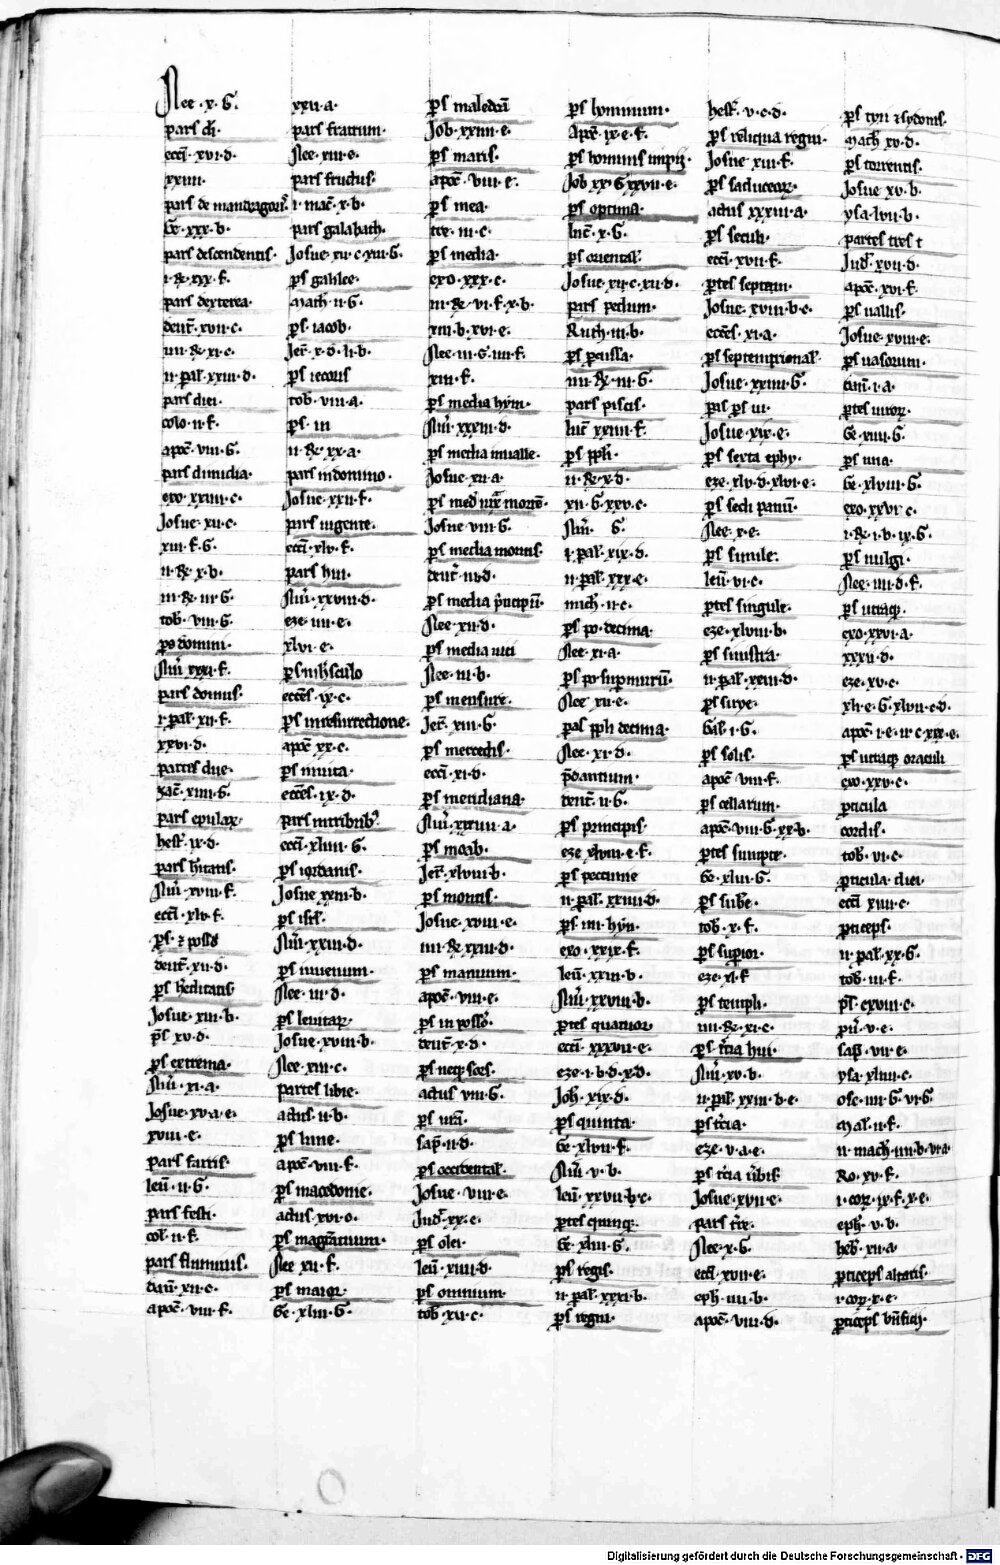 Nee·x·G·
pars dei
eccl·xvi·d·
xxiiii·
pars de mandragoris
Ge·xxx·b·
pars descendentis·
i·R·xxx·f·
pars dextera·
deut·xvii·c·
iiii·R·xi·c·
ii·pal·xxiii·d·
pars diei·
colo·ii·f·
apoc·viii·G·
pars dimidia·
exo·xxiiii·c·
Josue·xii·c·
xiii·f·G·
ii·R·x·b·
iii·R·iii·G·
tob·viii·G·
ps domini·
Nu·xxxi·f·
pars domus·
i·pal·xii·f·
xxvi·d·
partes due·
zac·xiiii·G·
pars epulax·
hest·ix·d·
Nu·xviii·f·
eccl·xlv·f·
deut·xii·d·
ps hereditatis
Josue·xiii·b·
ps·xv·d·
ps extrema·
Nu·xi·a·
Josue·xv·a·e·
xviii·e·
pars farris·
leu·ii·G·
pars festi·
col·ii·f·
pars fluminis·
dan·xii·c·
apoc·viii·f·
xxii·a·
pars fratrum·
Nee·xiii·e·
pars fructus·
i·mac·x·b·
pars galabach·
Josue·xii·c·xiii·G·
ps galilee·
Mach·ii·G·
ps·iacob·
Jer·x·d·li·b·
ps iecoris
tob·viii·a·
ps·iii
ii·R·xx·a·
pars in domino·
Josue·xxii·f·
pars ingente·
eccl·xlv·f·
pars hui·
Nu·xxviii·d·
eze·iiii·e·
xlvi·e·
ps in hoc seculo
ecces·ix·c·
ps in resurrectione·
apoc·xx·c·
ps iniuncta·
ecces·ix·d·
pars in tribubus
eccl·xliiii·G·
ps iordanis·
Josue xxiii·b·
ps isrl·
Nu·xxiii·d·
ps iuvenum·
Nee·iii·d·
ps levitarum·
Josue·xviii·b·
Nee·xiii·c·
partes libie·
actus·ii·b·
ps lune·
apoc·viii·f·
ps macedonie·
actus·xvi·c·
ps magistratuum·
Nee xii·f·
ps maior·
Ge·xliii·G·
ps maledicti
Job·xxiiii·e·
ps maris·
apoc·viii·e·
ps mea·
tre·iii·c·
ps media·
exo·xxx·c·
iii·R·vi·f·x·b·
xiii·b·xvi·e·
Nee·iii·G·iiii·f·
xiii·f·
ps media hyn·
Nu·xxxiii·d·
ps media in valle·
Josue·xii·a·
Josue·viii·G·
ps media montis·
deut·iii·d·
ps media principum·
Nee·xii·d·
ps media vici
Nee·iii·b·
ps mensure·
Jer·xiii·G·
ps mercedis·
eccl·xi·d·
ps meridiana·
ps moab·
Jer·xlviii·b·
ps montis·
Josue·xviii·e·
iiii·R·xxiii·d·
ps manuum·
apoc·viii·e·
ps in posso·
deut·x·d·
actus·viii·G·
ps nostra·
sap·ii·d·
ps occidentalis·
Josue·viii·e·
Jud·xx·e·
ps olei·
leu·xiiii·d·
ps omnium·
tob·xii·c·
ps hominum·
Apoc·ix·e·f·
ps hominis impii·
Job·xx·G·xxvii·e·
ps optima·
luc·x·G·
ps orientalis·
Josue·xii·c·xii·d·
pars pedum·
Ruth·iii·b·
ps percussa·
iiii·R·iii·G·
pars piscis·
luc·xxiiii·f·
ps ppli·
ii·R·x·d·
xii·G·xxv·c·
Nu· G·
i·pal·xix·d·
ii·pal·xxx·e·
mich·ii·c·
ps po·decima·
Nee·xi·a·
ps po·super murum·
Nee·xii·e·
pars ppli decima·
Nee·xi·d·
deut·ii·G·
ps principis·
eze xlviii·e·f·
ps peccunie
ii·pal·xxiiii·d·
ps·iiii·hyn·
exo·xxix·f·
leu·xxiii·b·
Nu·xxviii·b·
partes quatuor
eccl·xxxvii·e·
eze·i·b·d·x·d·
Joh·xix·d·
ps quinta·
Ge·xlvii·f·
Nu·v·b·
leu·xxvii·b·c·
partes quinque·
Ge·xliii·G·
ps regis·
ii·pal·xxxi·b·
ps regni·
hest·v·c·d·
ps reliqua regni·
Josue·xiii·f·
ps saduceorum·
actus xxiii·a·
ps seculi·
eccl·xvii·f·
partes septem·
Josue·xviii·b·c·
ecces·xi·a·
ps septemtrionalis
Josue·xxiiii·G·
Josue·xix·e·
ps sexta ephy·
eze·xlv·d·xlvi·e·
Nee·x·e·
ps simile·
leu·vi·c·
partes singule·
eze·xlviii·b·
ps sinistra·
ii·pal·xxiii·d·
ps sirye·
Gal·i·G·
ps solis·
apoc·viii·f·
ps stellarum·
apoc·viii·G·xx·b·
partes sumpte·
Ge·xlii·G·
tob·x·f·
ps superior·
eze·xl·f·
ps templi·
iiii·R·xi·c·
ps tercia hui·
Nu·xv·b·
ii·pal·xxiii·b·e·
ps tercia·
eze·v·a·e·
ps tercia urbis
Josue·xvii·e·
pars terre·
Nee·x·G·
eccl·xvii·e·
eph·iiii·b·
apoc·viii·d·
ps tyri et sydonis·
Mach·xv·d·
ps torrentis·
Josue·xv·b·
ysa·lvii·b·
partes tres
Jud·xvii·d·
apoc·xvi·f·
ps vallis·
Josue·xviii·e·
ps vasorum·
dan·i·a·
partes vivorum·
Ge·xiiii·G·
ps una·
Ge·xlviii·G·
exo·xxvi·c·
i·R·i·b·ix·G·
ps vulgi·
Nee·iiii·d·f·
ps utraque·
exo·xxvi·a·
xxxii·d·
eze·xv·c·
xli·e·G·xlvii·c·d·
apoc·i·e·ii·c·xix·e·
ps utraque oraculi
exo·xxv·c·
particula
cordis·
tob·vi·c·
particula diei·
eccl·xiiii·c·
particeps·
ii·pal·xx·G·
tob·iii·f·
ps·cxviii·c·
pu·v·e·
sap·vii·e·
ysa·xliiii·c·
ose·iiii·G·vi·G·
Mal·ii·f·
ii·mach·iiii·b·vi·a·
Ro·xv·f·
i·cor·ix·f·x·e·
eph·v·b·
heb·xii·a·
particeps altaris·
i·cor·x·e·
particeps beneficii·
Digitalisierung gefördert durch die Deutsche Forschungsgemeinschaft - DFG